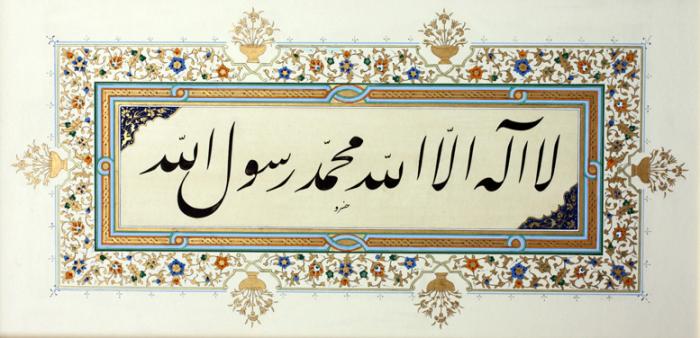 لا آله الّا اللّه محمّد رسول اللّه